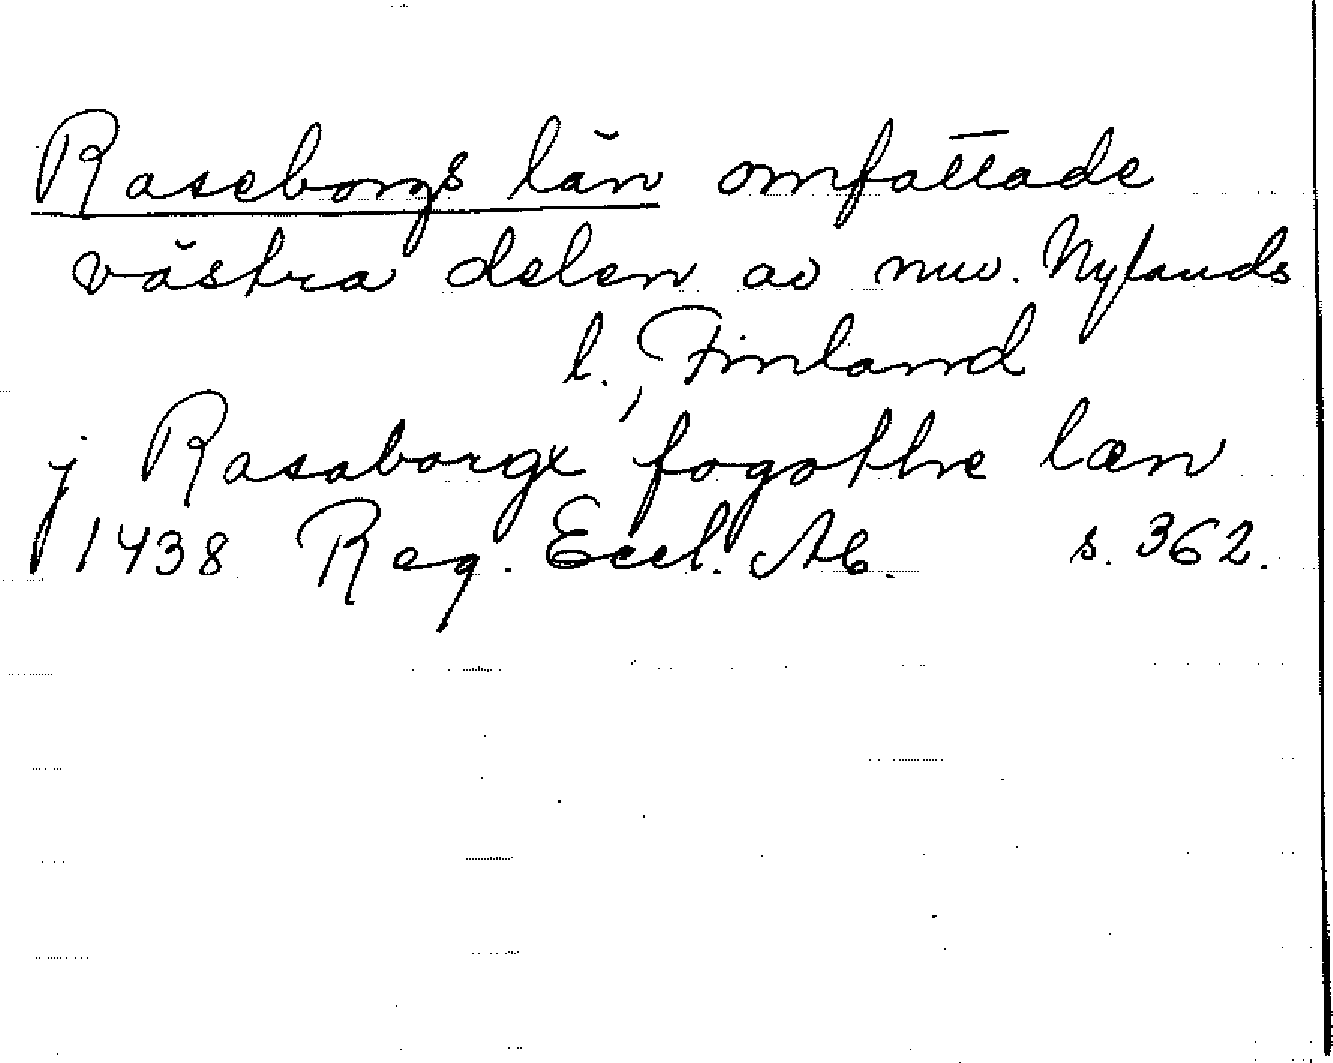 Raseborgs län omfattade
västra delen av nuv. Nylands
l., Finland
j Rasaborgx fogothe læn
1438 Reg. Eccl. Ab. s. 362.